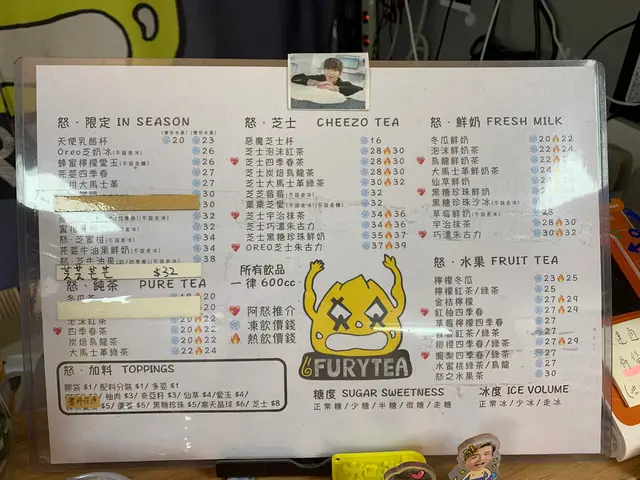 怒·限定 IN SEASON
天使乳酪杯 20 23
Oreo芝奶冰(不設走冰) 26
蜂蜜檸檬愛玉(不設走糖) 26
芫荽四季春 27
大馬士革 27
30
30
32
怒·蜜柑(不設走冰) 34
芫荽牛油果鮮奶(不設走冰) 34
怒·芝牛油果 38
芫荽芭芒 $32
怒·純茶 PURE TEA
20
20
泡沫紅茶 20 22
四季春茶 20 22
炭焙烏龍茶 20 22
大馬士革綠茶 22 24
怒·加料 TOPPINGS
膠袋 $1/ 配料分裝 $1/ 多荽 $1
柚肉 $3/ 奇亞籽 $3/ 仙草 $4/愛玉 $4/
$5/ 蘆薈 $5/ 黑糖珍珠 $5/寒天晶球 $6/ 芝士 $8
怒·芝士 CHEEZO TEA
惡魔芝士杯 16
芝士泡沫紅茶 28 30
芝士四季春茶 28 30
芝士炭焙烏龍茶 28 30
芝士大馬士革綠茶 30 32
芝芝莓莓(不設走冰) 32
栗栗芝愛(不設走冰)(不設走糖) 32
芝士宇治抹茶 34 36
芝士巧還朱古力 34 36
芝士黑糖珍珠鮮奶 35 37
OREO芝士朱古力 37 39
所有飲品
一律 600cc
阿怒推介
凍飲價錢
熱飲價錢
FURYTEA
怒·鮮奶 FRESH MILK
冬瓜鮮奶 20 22
泡沫鮮奶茶 22 24
烏龍鮮奶茶 22 24
大馬士革鮮奶茶 24
仙草鮮奶
黑糖珍珠鮮奶
黑糖珍珠沙冰(不設走冰)
草莓鮮奶(不設走冰) 28
宇治抹茶 28 30
巧還朱古力 30 32
怒·水果 FRUIT TEA
檸檬冬瓜 23 25
檸檬紅茶/綠茶 25
金桔檸檬 27 29
紅柚四季春 27 29
草莓檸檬四季春 27
百香紅茶/綠茶 27
柳橙四季春/綠茶 27 29
鳳梨四季春/綠茶 27 29
水蜜桃綠茶/烏龍 27
怒之水果茶 30
糖度 SUGAR SWEETNESS
正常糖/少糖/半糖/微糖/走糖
冰度 ICE VOLUME
正常冰/少冰/走冰